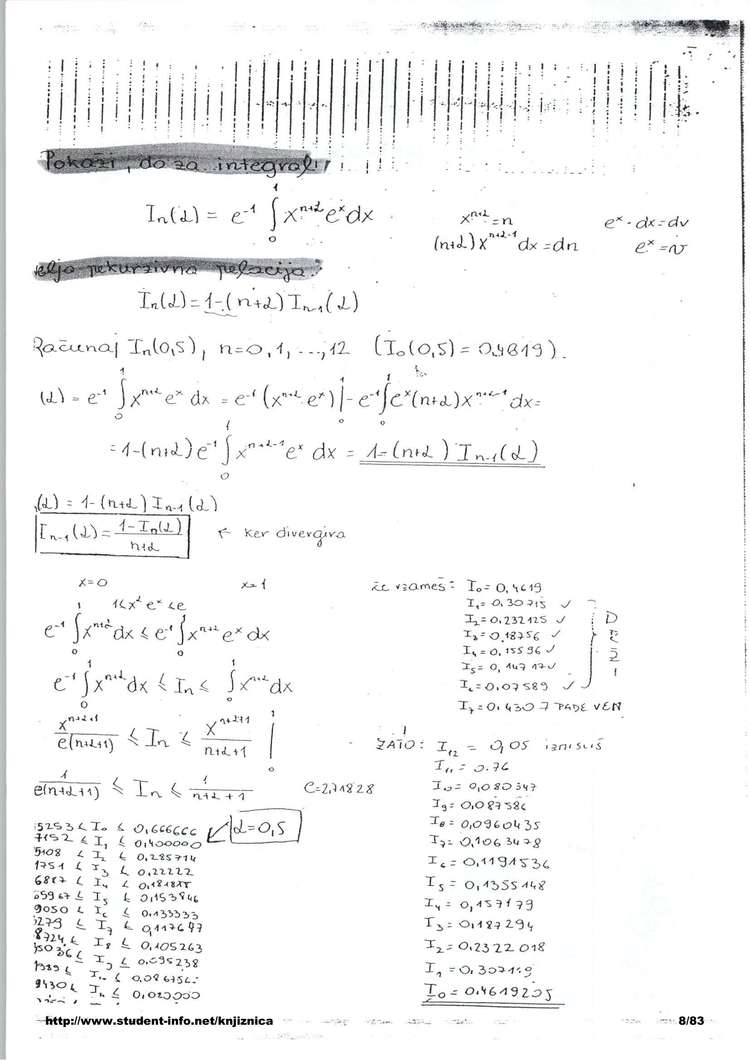 Pokaži, da za integrali
Iₙ(α) = e⁻¹ ∫₀¹ xⁿ⁺ᵅ eˣ dx    xⁿ⁺ᵅ = u    eˣ · dx = dv
(n+α) xⁿ⁺ᵅ⁻¹ dx = du    eˣ = v
velja rekurzivna relacija:
Iₙ(α) = 1-(n+α) Iₙ₋₁(α)
Računaj Iₙ(0,5), n=0, 1, ..., 12 (I₀(0,5) = 0,4619).
(α) = e⁻¹ ∫₀¹ xⁿ⁺ᵅ eˣ dx = e⁻¹ (xⁿ⁺ᵅ eˣ)|₀¹ - e⁻¹ ∫₀¹ eˣ (n+α) xⁿ⁺ᵅ⁻¹ dx =
= 1-(n+α) e⁻¹ ∫₀¹ xⁿ⁺ᵅ⁻¹ eˣ dx = 1-(n+α) Iₙ₋₁(α)
(α) = 1-(n+α) Iₙ₋₁(α)
Iₙ₋₁(α) = (1-Iₙ(α))/(n+α) ← ker divergira
x=0    x=1
1 ≤ eˣ ≤ e
e⁻¹ ∫₀¹ xⁿ⁺ᵅ dx ≤ e⁻¹ ∫₀¹ xⁿ⁺ᵅ eˣ dx
e⁻¹ ∫₀¹ xⁿ⁺ᵅ dx ≤ Iₙ ≤ ∫₀¹ xⁿ⁺ᵅ dx
xⁿ⁺ᵅ⁺¹/(e(n+α+1)) ≤ Iₙ ≤ xⁿ⁺ᵅ⁺¹/(n+α+1) |₀¹
1/(e(n+α+1)) ≤ Iₙ ≤ 1/(n+α+1)    e=2,71828
α=0,5
5253 ≤ I₀ ≤ 0,666666
7152 ≤ I₁ ≤ 0,400000
5108 ≤ I₂ ≤ 0,285714
1751 ≤ I₃ ≤ 0,22222
6887 ≤ I₄ ≤ 0,1818
5967 ≤ I₅ ≤ 0,153846
9050 ≤ I₆ ≤ 0,133333
≤ I₇ ≤ 0,117647
8724 ≤ I₈ ≤ 0,105263
≤ I₉ ≤ 0,095238
≤ 0,0869565
9430 ≤
če vzameš: I₀ = 0,4619
I₁ = 0,30715 ✓
I₂ = 0,232125 ✓
I₃ = 0,18756 ✓
I₄ = 0,15596 ✓
I₅ = 0,1417 ✓
I₆ = 0,07589 ✓
DRŽI
I₇ = 0,4307 PADE VEN
ZATO: I₁₂ = 0,05 izmisliš
I₁₁ = 0.76
I₁₀ = 0,080347
I₉ = 0,087586
I₈ = 0,0960435
I₇ = 0,1063478
I₆ = 0,1191536
I₅ = 0,1355148
I₄ = 0,157179
I₃ = 0,187294
I₂ = 0,2322018
I₁ = 0,307119
I₀ = 0,4619205
http://www.student-info.net/knjiznica    8/83